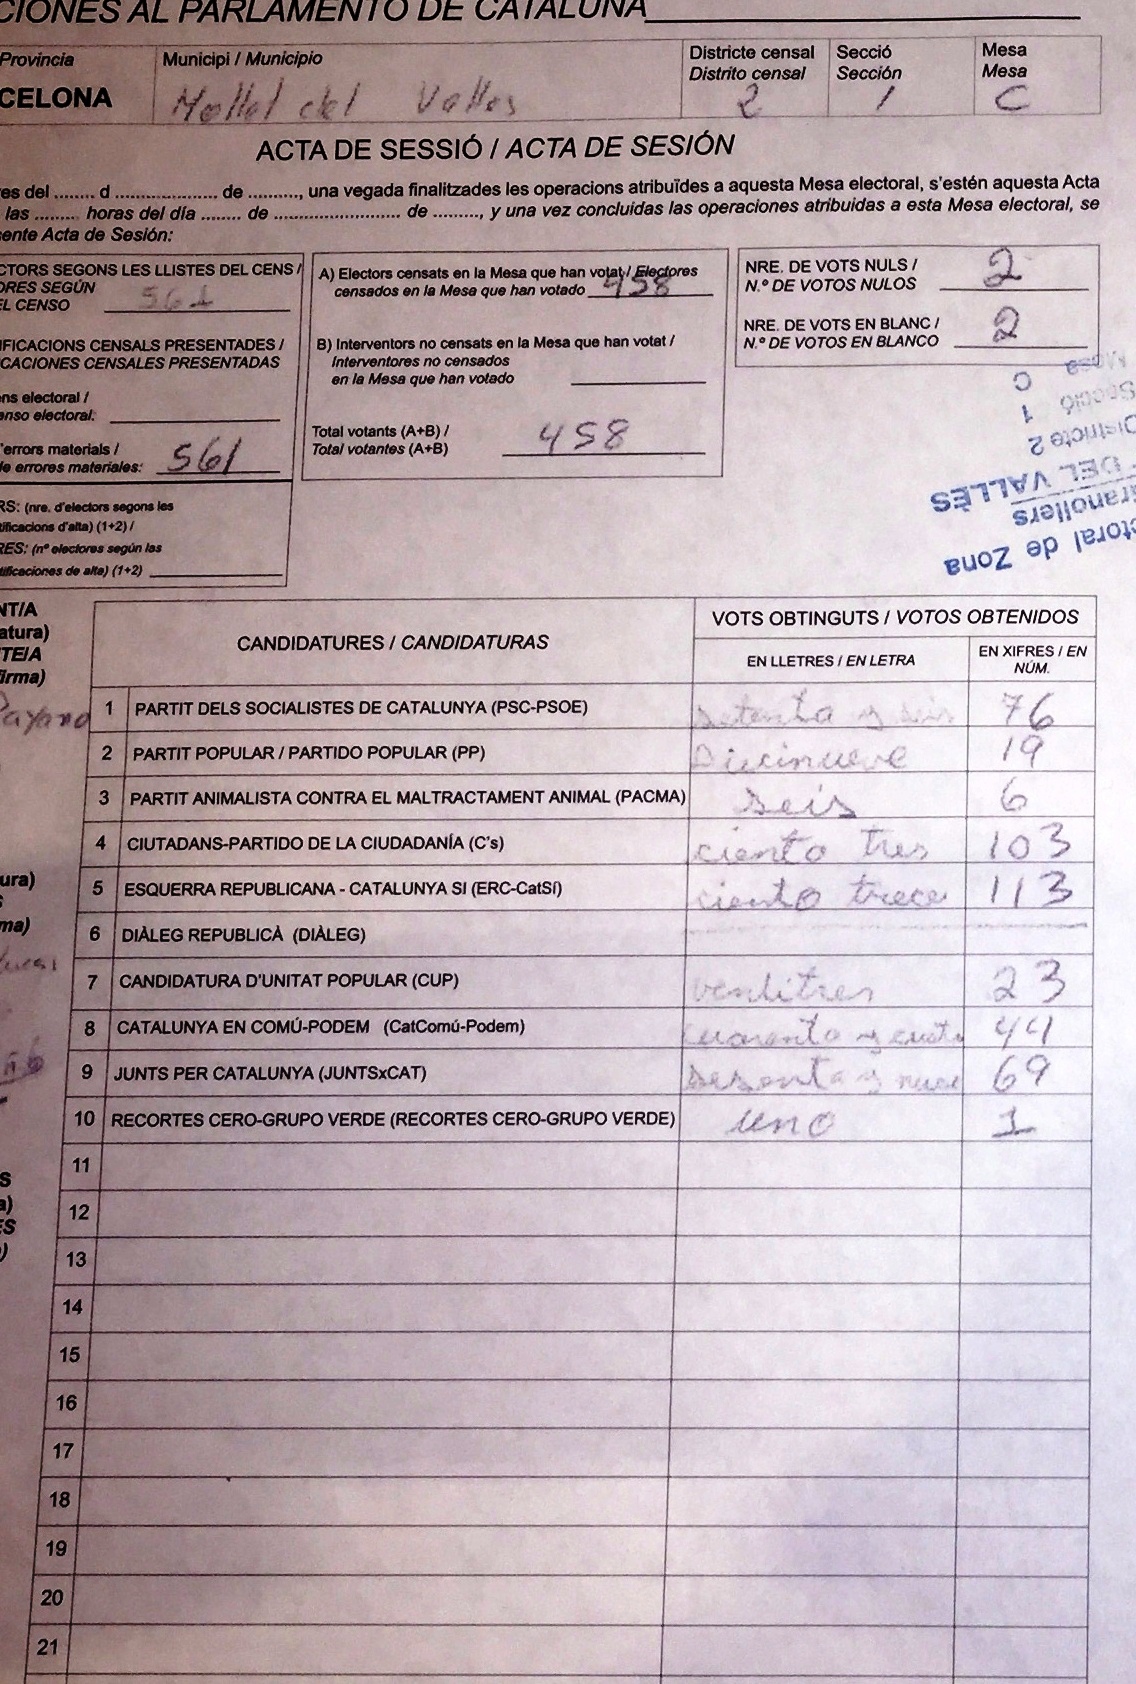 CIONES AL PARLAMENTO DE CATALUÑA
Provincia
CELONA
Municipi / Municipio
Mollet del Valles
Districte censal
Distrito censal
2
Secció
Sección
1
Mesa
Mesa
C
ACTA DE SESSIÓ / ACTA DE SESIÓN
res del ........ d ...................... de .........., una vegada finalitzades les operacions atribuïdes a aquesta Mesa electoral, s'estén aquesta Acta
las ......... horas del día ........ de .......................... de .........., y una vez concluidas las operaciones atribuidas a esta Mesa electoral, se
sente Acta de Sesión:
CTORS SEGONS LES LLISTES DEL CENS /
ORES SEGÚN
EL CENSO 561
IFICACIONS CENSALS PRESENTADES /
CACIONES CENSALES PRESENTADAS
ens electoral /
enso electoral:
'errors materials /
de errores materiales: 561
RS: (nre. d'electors segons les
tificacions d'alta) (1+2) /
RES: (nº electores según las
tificaciones de alta) (1+2)
A) Electors censats en la Mesa que han votat / Electores
censados en la Mesa que han votado 458
B) Interventors no censats en la Mesa que han votat /
Interventores no censados
en la Mesa que han votado
Total votants (A+B) /
Total votantes (A+B) 458
NRE. DE VOTS NULS /
N.º DE VOTOS NULOS 2
NRE. DE VOTS EN BLANC /
N.º DE VOTOS EN BLANCO 2
Mesa C
Secció 1
Districte 2
DEL VALLÈS
ranollers
ctoral de Zona
NT/A
atura)
TE/A
firma)
Payano
CANDIDATURES / CANDIDATURAS
VOTS OBTINGUTS / VOTOS OBTENIDOS
EN LLETRES / EN LETRA
EN XIFRES / EN
NÚM.
1 PARTIT DELS SOCIALISTES DE CATALUNYA (PSC-PSOE) setenta y seis 76
2 PARTIT POPULAR / PARTIDO POPULAR (PP) Diecinueve 19
3 PARTIT ANIMALISTA CONTRA EL MALTRACTAMENT ANIMAL (PACMA) seis 6
4 CIUTADANS-PARTIDO DE LA CIUDADANÍA (C's) ciento tres 103
5 ESQUERRA REPUBLICANA - CATALUNYA SI (ERC-CatSí) ciento trece 113
6 DIÀLEG REPUBLICÀ (DIÀLEG)
7 CANDIDATURA D'UNITAT POPULAR (CUP) ventitres 23
8 CATALUNYA EN COMÚ-PODEM (CatComú-Podem) cuarenta y cuatro 44
9 JUNTS PER CATALUNYA (JUNTSxCAT) sesenta y nueve 69
10 RECORTES CERO-GRUPO VERDE (RECORTES CERO-GRUPO VERDE) uno 1
11
12
13
14
15
16
17
18
19
20
21
ura)
S
ma)
S
a)
ES
)